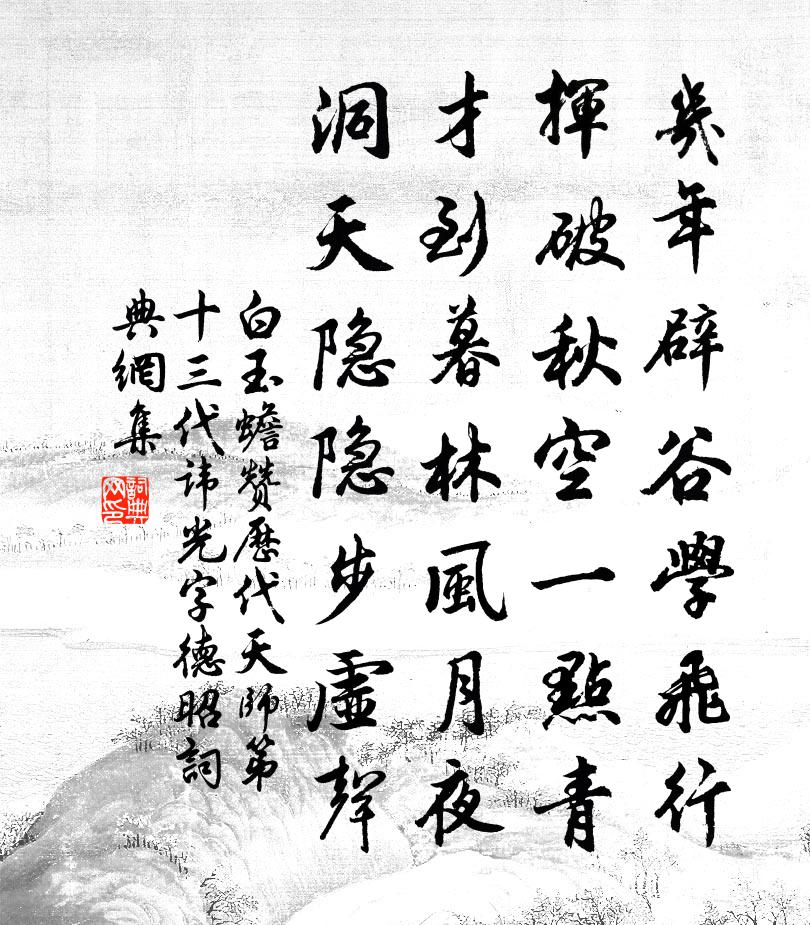 幾年辟谷學飛行
揮破秋空一點青
才到暮林風月夜
洞天隐隐步虛聲
白玉蟾赞歷代天師第
十三代諱光字德昭詞
典網集
詞典
网印